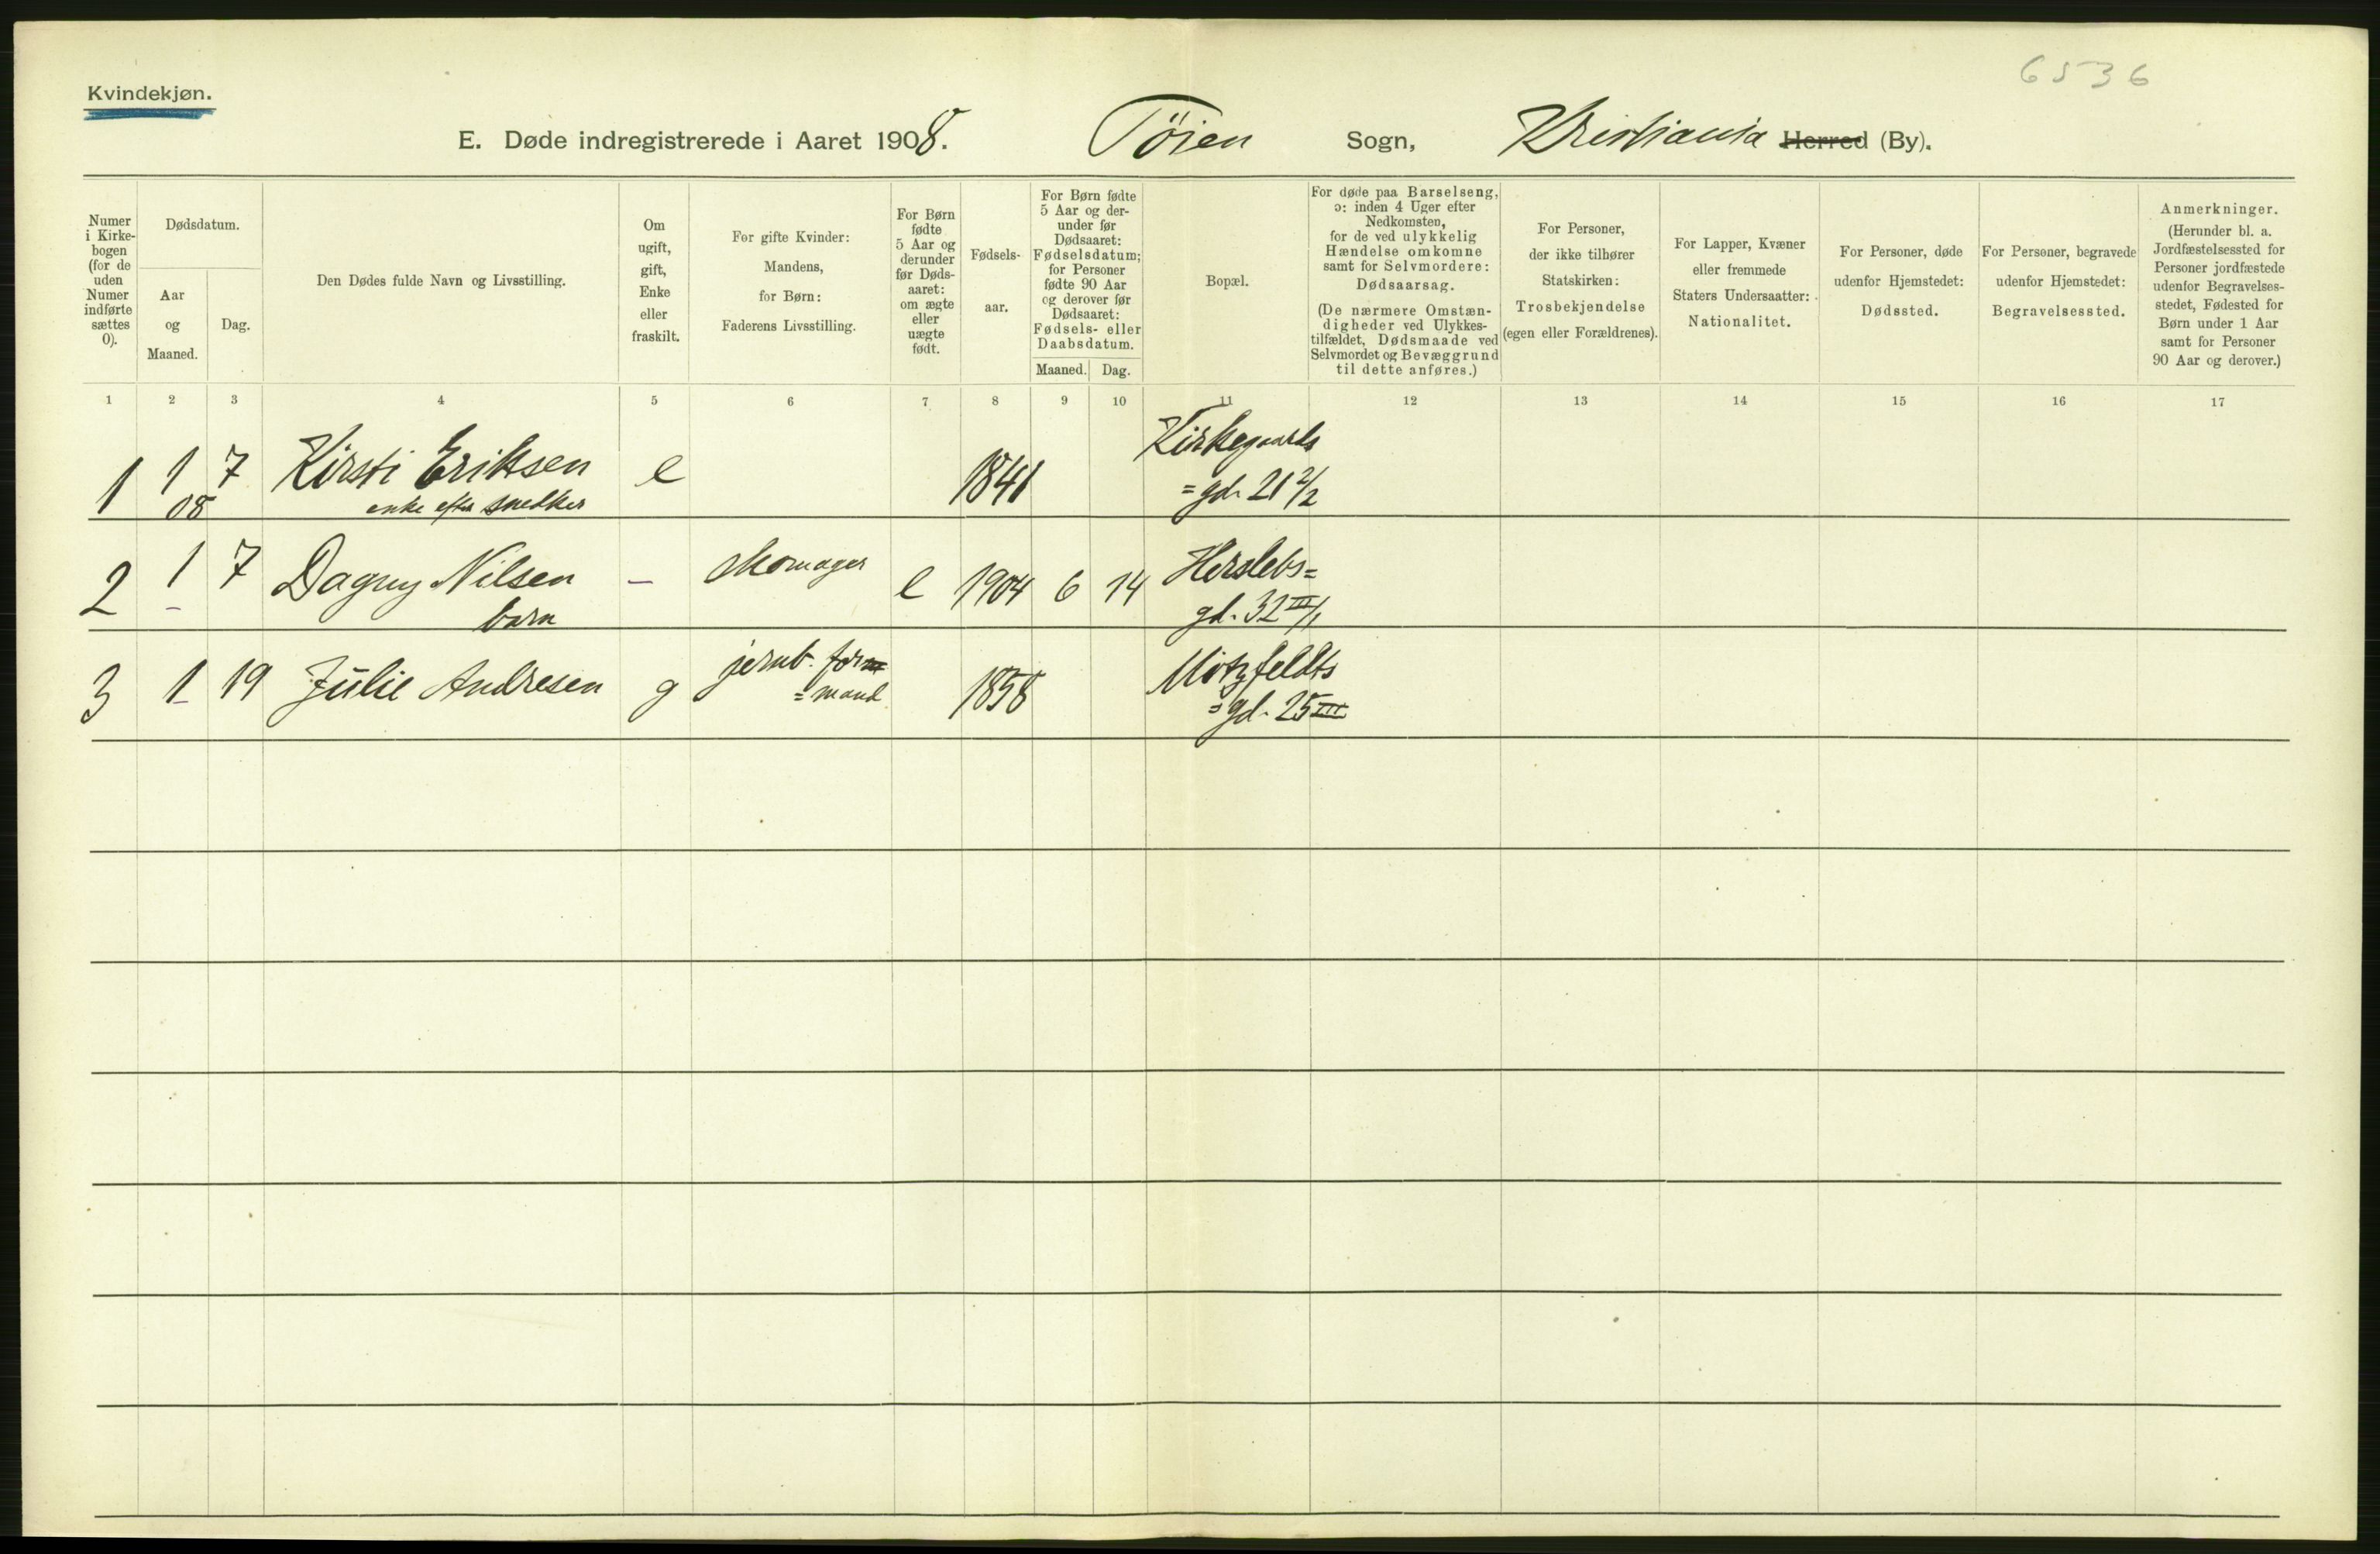 6536
Kvindekjøn.
E. Døde indregistrerede i Aaret 1908. Töien Sogn, Kristiania Herred (By).
Numer i Kirke-bogen (for de uden Numer indførte sættes 0).
Dødsdatum.
Aar og Maaned.
Dag.
Den Dødes fulde Navn og Livsstilling.
Om ugift, gift, Enke eller fraskilt.
For gifte Kvinder: Mandens, for Børn: Faderens Livsstilling.
For Børn fødte 5 Aar og derunder før Døds-aaret: om ægte eller uægte født.
Fødsels-aar.
For Børn fødte 5 Aar og der-under før Dødsaaret: Fødselsdatum; for Personer fødte 90 Aar og derover før Dødsaaret: Fødsels- eller Daabsdatum.
Maaned. Dag.
Bopæl.
For døde paa Barselseng, ɔ: inden 4 Uger efter Nedkomsten, for de ved ulykkelig Hændelse omkomne samt for Selvmordere: Dødsaarsag.
(De nærmere Omstæn-digheder ved Ulykkes-tilfældet, Dødsmaade ved Selvmordet og Bevæggrund til dette anføres.)
For Personer, der ikke tilhører Statskirken: Trosbekjendelse (egen eller Forældrenes).
For Lapper, Kvæner eller fremmede Staters Undersaatter: Nationalitet.
For Personer, døde udenfor Hjemstedet: Dødssted.
For Personer, begravede udenfor Hjemstedet: Begravelsessted.
Anmerkninger. (Herunder bl. a. Jordfæstelsessted for Personer jordfæstede udenfor Begravelses-stedet, Fødested for Børn under 1 Aar samt for Personer 90 Aar og derover.)
1 2 3 4 5 6 7 8 9 10 11 12 13 14 15 16 17
1 1 7 Kirsti Eriksen e 1841 Kirkegaards
08 enke efter snedker =gd. 21 2/2
2 1 7 Dagny Nilsen – skomager e 1904 6 14 Herslebs=
– barn gd. 32 III/1
3 1 19 Julie Andresen g jernb. form 1858 Motzfeldts
– =mand =gd. 25 III